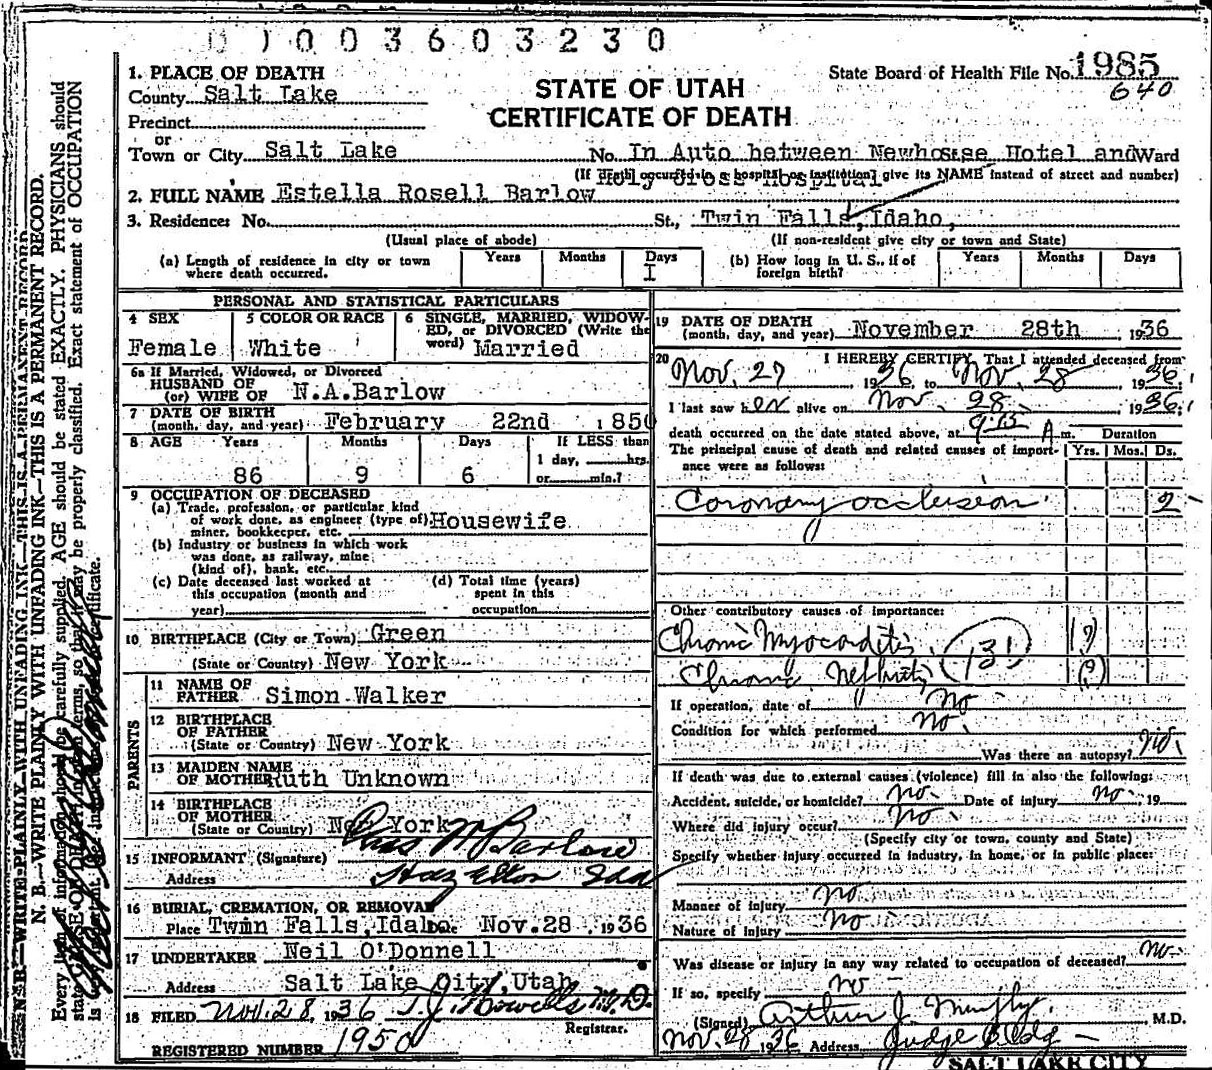 1003603230
1. PLACE OF DEATH
County Salt Lake
Precinct
or
Town or City Salt Lake
STATE OF UTAH
CERTIFICATE OF DEATH
State Board of Health File No. 1985
640
No. In Auto between Newhouse Hotel and Ward
Holy Cross Hospital
(If death occurred in a hospital or institution, give its NAME instead of street and number)
2. FULL NAME Estella Rosell Barlow
3. Residence: No. St., Twin Falls, Idaho,
(Usual place of abode) (If non-resident give city or town and State)
(a) Length of residence in city or town where death occurred. Years Months Days 1
(b) How long in U. S., if of foreign birth? Years Months Days
PERSONAL AND STATISTICAL PARTICULARS
4 SEX Female
5 COLOR OR RACE White
6 SINGLE, MARRIED, WIDOWED, or DIVORCED (Write the word) Married
6a If Married, Widowed, or Divorced
HUSBAND OF
(or) WIFE OF N.A.Barlow
7 DATE OF BIRTH
(month, day, and year) February 22nd 1850
8 AGE Years Months Days If LESS than
1 day, hrs.
86 9 6 or min.?
9 OCCUPATION OF DECEASED
(a) Trade, profession, or particular kind
of work done, as engineer (type of) Housewife
miner, bookkeeper, etc.
(b) Industry or business in which work
was done, as railway, mine
(kind of), bank, etc.
(c) Date deceased last worked at this occupation (month and year)
(d) Total time (years) spent in this occupation
10 BIRTHPLACE (City or Town) Green
(State or Country) New York
PARENTS
11 NAME OF
FATHER Simon Walker
12 BIRTHPLACE
OF FATHER
(State or Country) New York
13 MAIDEN NAME
OF MOTHER Ruth Unknown
14 BIRTHPLACE
OF MOTHER
(State or Country) New York
15 INFORMANT (Signature) Chas W Barlow
Address Hazelton Ida
16 BURIAL, CREMATION, OR REMOVAL
Place Twin Falls, Idaho. Nov.28, 1936
17 UNDERTAKER Neil O'Donnell
Address Salt Lake City, Utah
18 FILED Nov. 28, 1936 T.J. Howells M.D.
Registrar.
REGISTERED NUMBER 1950
19 DATE OF DEATH
(month, day, and year) November 28th 1936
20 I HEREBY CERTIFY, That I attended deceased from
Nov. 27, 1936, to Nov. 28, 1936;
I last saw her alive on Nov. 28, 1936;
death occurred on the date stated above, at 9:15 A m. Duration
The principal cause of death and related causes of importance were as follows: Yrs. Mos. Ds.
Coronary occlusion 2
Other contributory causes of importance:
Chronic Myocarditis (?)
131
Chronic Nephritis (?)
If operation, date of No
Condition for which performed No.
Was there an autopsy? No.
If death was due to external causes (violence) fill in also the following:
Accident, suicide, or homicide? No. Date of injury No., 19
Where did injury occur? No.
(Specify city or town, county and State)
Specify whether injury occurred in industry, in home, or in public place:
Manner of injury No
Nature of injury No
Was disease or injury in any way related to occupation of deceased? No.
If so, specify No
(Signed) Arthur J. Murphy, M.D.
Nov. 28 1936 Address Judge Bldg
SALT LAKE CITY
N. B.—WRITE PLAINLY WITH UNFADING INK—THIS IS A PERMANENT RECORD.
N. B.—WRITE PLAINLY WITH UNFADING INK—THIS IS A PERMANENT RECORD.
Every item of information should be carefully supplied. AGE should be stated EXACTLY. PHYSICIANS should
state CAUSE OF DEATH in plain terms, so that it may be properly classified. Exact statement of OCCUPATION
is
certificate.